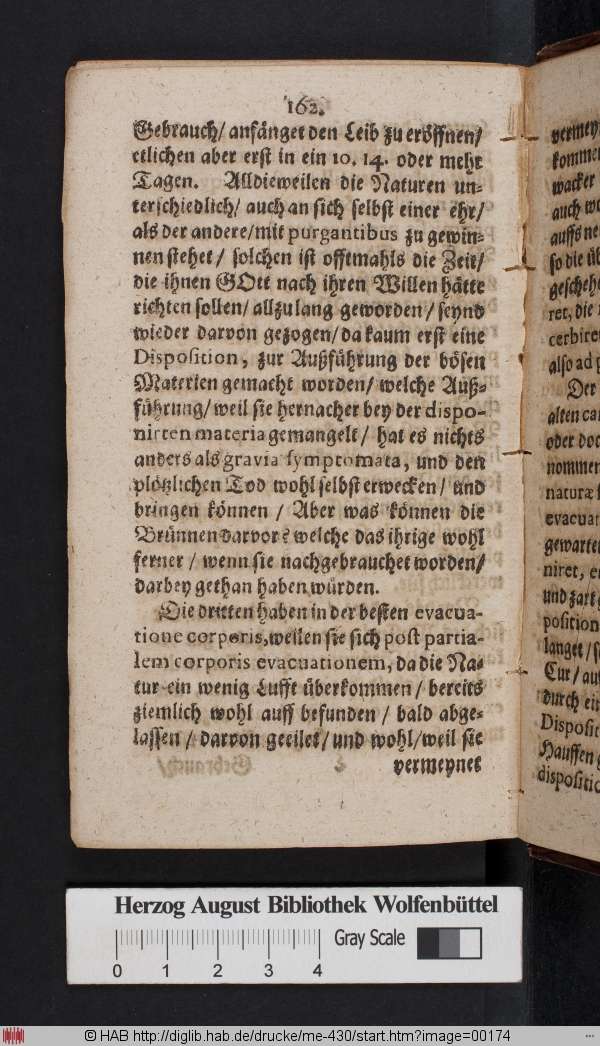 162.
Gebrauch/ anfänget den Leib zu eröffnen/
etlichen aber erst in ein 10. 14. oder mehr
Tagen. Alldieweilen die Naturen un-
terschiedlich/ auch an sich selbst einer ehr/
als der andere/ mit purgantibus zu gewin-
nen stehet/ solchen ist offtmahls die Zeit/
die ihnen GOtt nach ihren Willen hätte
richten sollen/ allzulang geworden/ seynd
wieder darvon gezogen/ da kaum erst eine
Disposition, zur Außführung der bösen
Materien gemacht worden/ welche Auß-
führung/ weil sie hernacher bey der dispo-
nirten materia gemangelt/ hat es nichts
anders als gravia symptomata, und den
plötzlichen Tod wohl selbst erwecken/ und
bringen können / Aber was können die
Brünnen darvor? welche das ihrige wohl
ferner / wenn sie nachgebrauchet worden/
darbey gethan haben würden.
Die dritten haben in der besten evacua-
tione corporis, weilen sie sich post partia-
lem corporis evacuationem, da die Na-
tur ein wenig Lufft überkommen / bereits
ziemlich wohl auff befunden / bald abge-
lassen / darvon geeilet/ und wohl/ weil sie
vermeynet
vermey
kommen
wacker
auch wo
auffs ne
so die üb
gescheh
ret, die
cerbire
also ad p
Der
alten ca
oder doc
nommen
naturæ
evacuat
gewarte
niret, e
und zart
position
langet/
Cur/ au
durch ei
Disposit
Hauffen
dispositio
Herzog August Bibliothek Wolfenbüttel
Gray Scale
0 1 2 3 4
© HAB http://diglib.hab.de/drucke/me-430/start.htm?image=00174